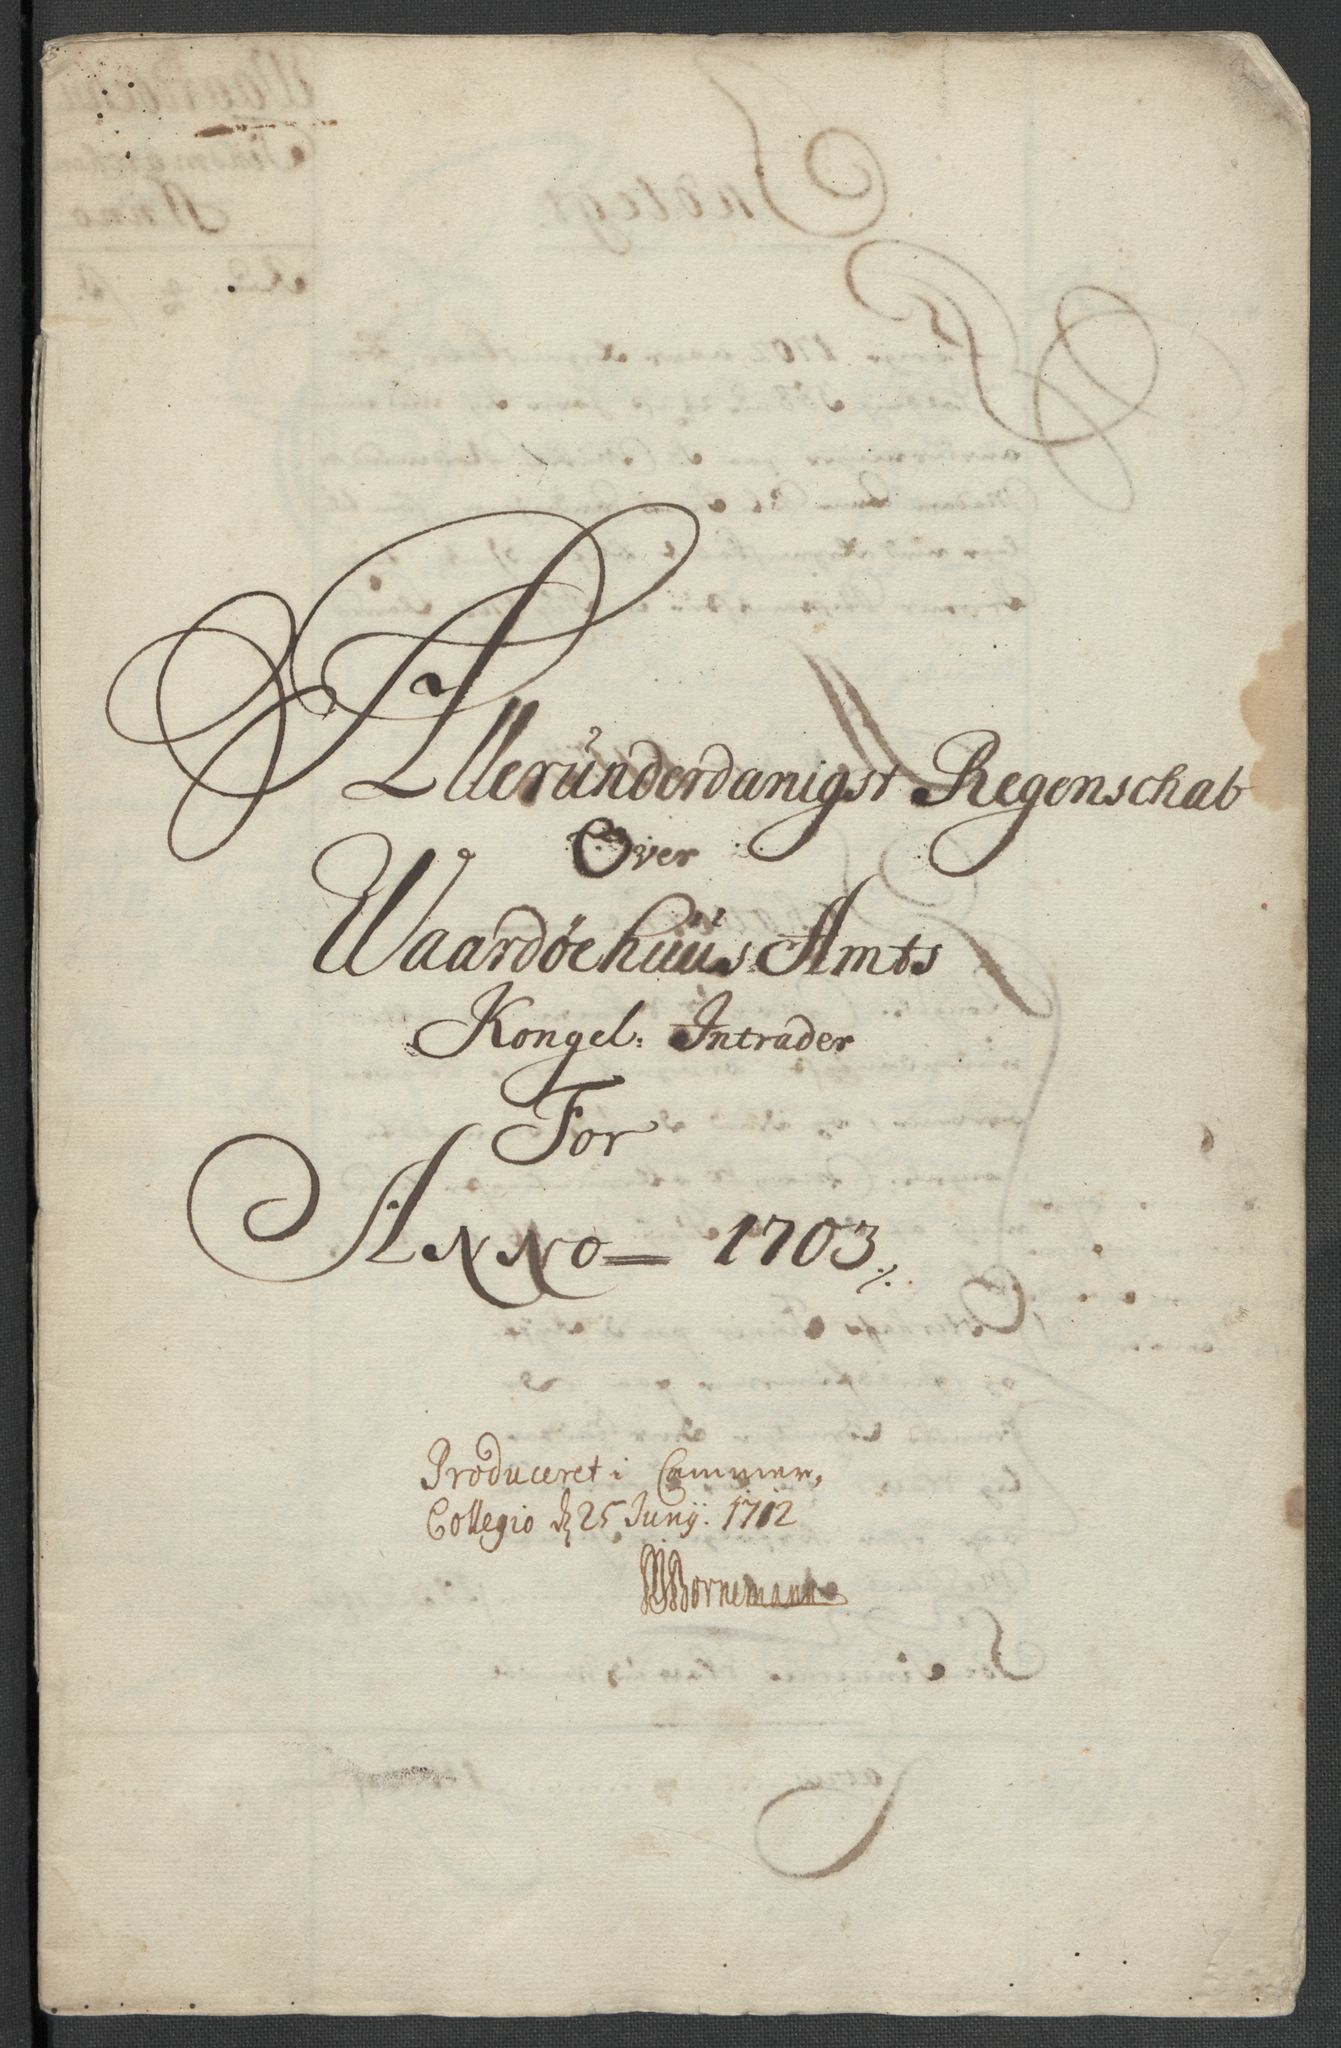 Allerúnderdanigst Regenschab
Over
Waardøehúús Amts
Kongel: Intrader
For
Anno 1703
Produceret i Cammer,
Collegio d 25 Junij: 1712
Bornemann